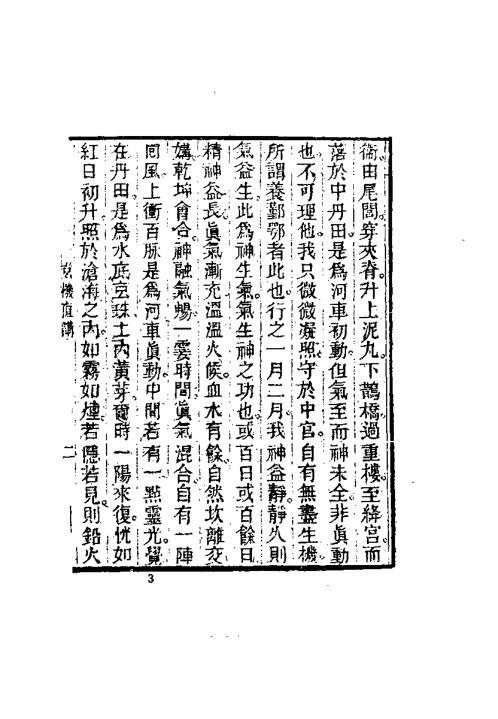 衝由尾閭穿夾脊升上泥丸下鵲橋過重樓至絳宮而
落於中丹田是爲河車初動但氣至而神未全非眞動
也不可理他我只微微凝照守於中宮自有無盡生機
所謂養鄞鄂者此也行之一月二月我神益靜靜久則
氣益生此爲神生氣氣生神之功也或百日或百餘日
精神益長眞氣漸充溫溫火候血水有餘自然坎離交
媾乾坤會合神融氣暢一霎時間眞氣混合自有一陣
回風上衝百脉是爲河車眞動中間若有一點靈光覺
在丹田是爲水底玄珠土內黃芽爾時一陽來復恍如
紅日初升照於滄海之內如霧如煙若隱若見則鉛火
玄機直講 二
3